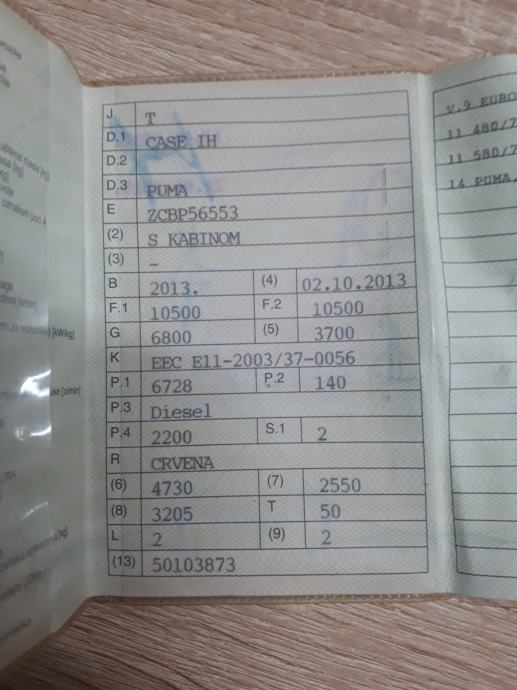 J T
D.1 CASE IH
D.2
D.3 PUMA
E ZCBP56553
(2) S KABINOM
(3) –
B 2013. (4) 02.10.2013
F.1 10500 F.2 10500
G 6800 (5) 3700
K EEC E11-2003/37-0056
P.1 6728 P.2 140
P.3 Diesel
P.4 2200 S.1 2
R CRVENA
(6) 4730 (7) 2550
(8) 3205 T 50
L 2 (9) 2
(13) 50103873
V.9 EURO
11 480/7
11 580/7
14 PUMA